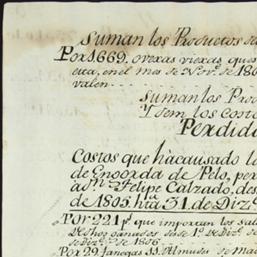 Suman los Productos de
Por 1669. ovexas viexas que
en el mes de Nov.e de 180
valen
Suman los Prod
Y sem los costo
Perdida
Costos que hà causado la
de Engorda de Pelo, per
a D.n Felipe Calzado, des
de 1805. hta 31. de Diz.
Por 221 p.s que importan los sal
ganados de 1.º de Diz.e de
de Diz.e de 1806.
Por 29 fanegas 11. Almudes de mai